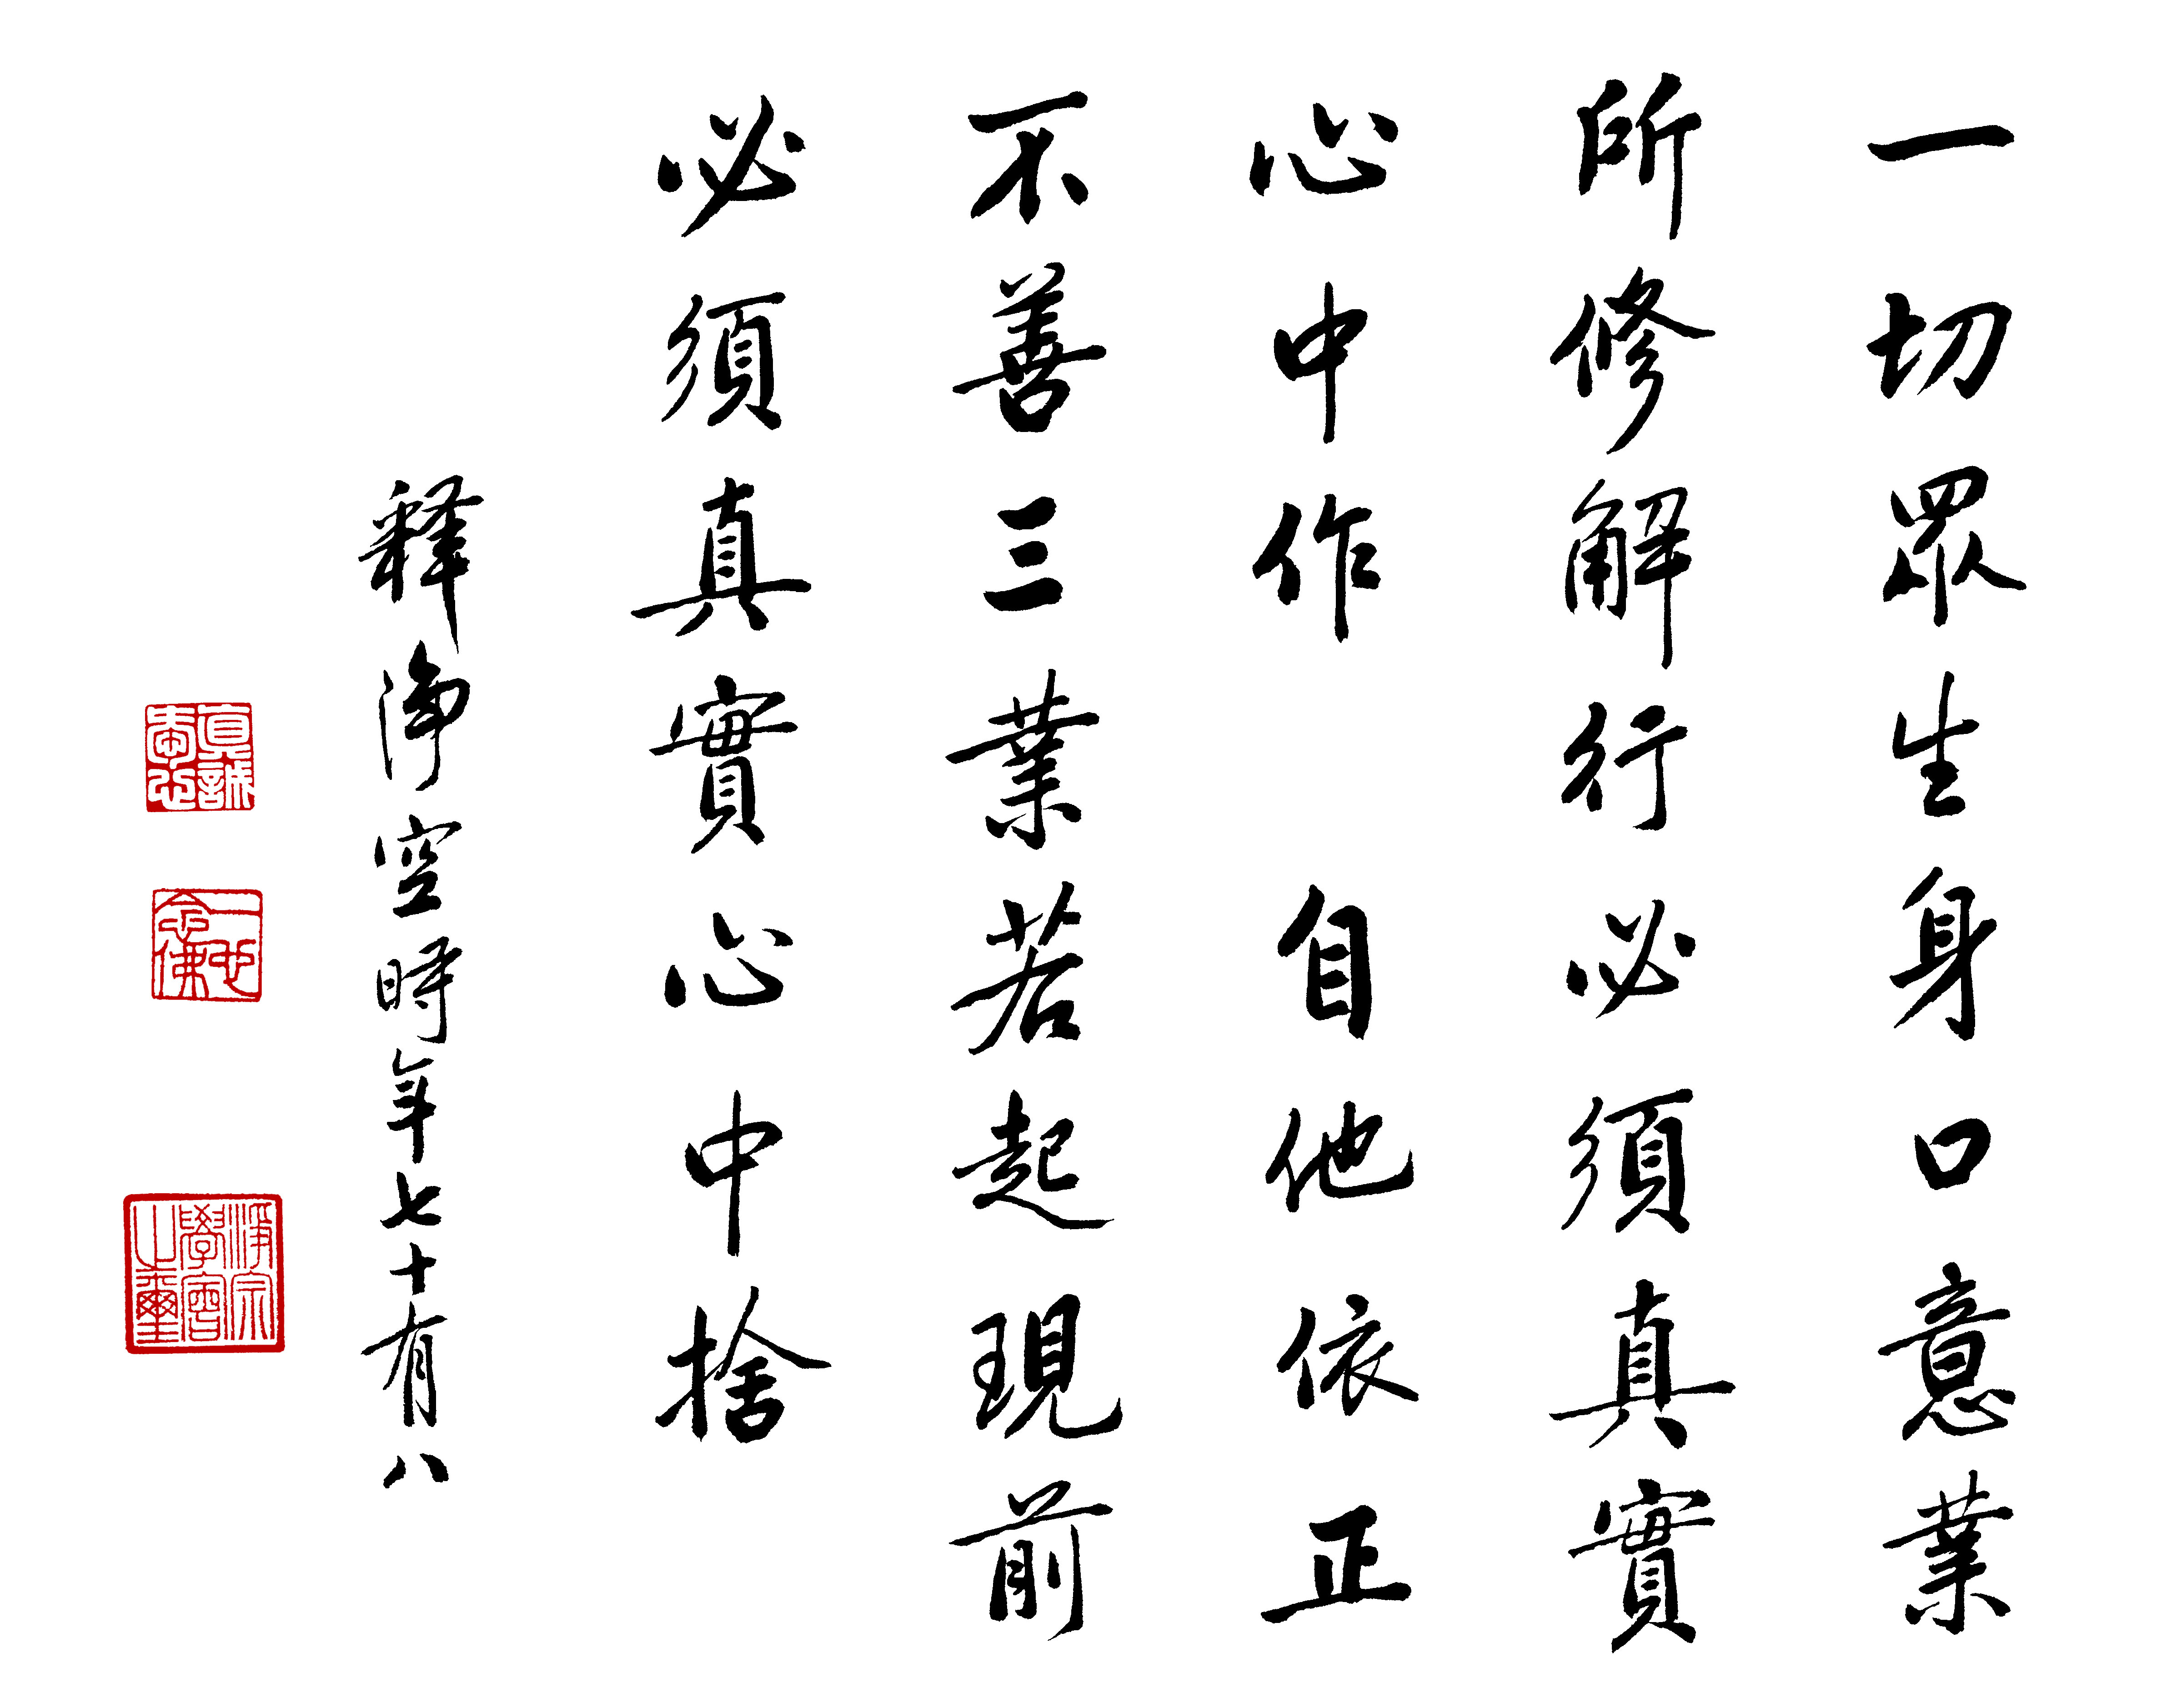 一切眾生身口意業
所修解行 必須真實
心中作 自他依正
不善三業若起現前
必須真實心中捨
釋淨空時年七十有八
真誠
一心念佛
淨宗學會之璽